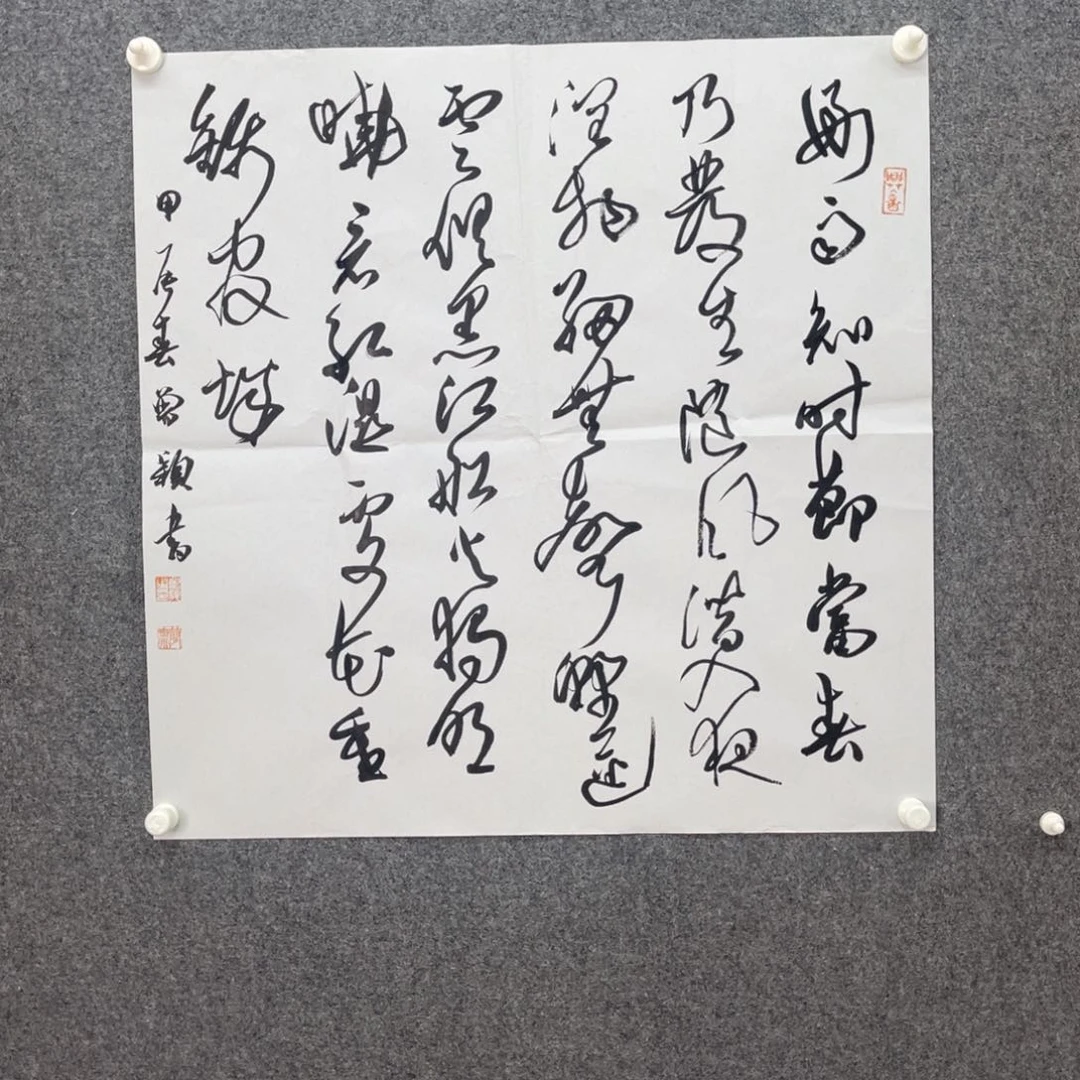 好雨知时節當春
乃發生隨風潜入夜
潤物細無聲野逕
雲俱黑江船火獨明
曉看紅濕處花重
錦官城
甲辰春曾穎書